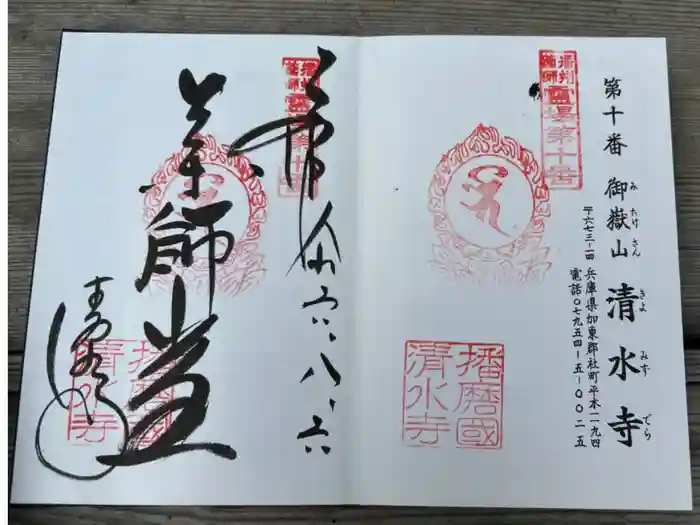 第十番 御嶽山 清水寺
みたけさん きよみずでら
〒六七三-一四 兵庫県加東郡社町平木一一九四
電話〇七九五四-五-〇〇二五
播州
薬師
霊場第十番
播磨國
清水寺
奉
六、八、六
播州
薬師
霊場第十番
薬師堂
播磨國
清水寺